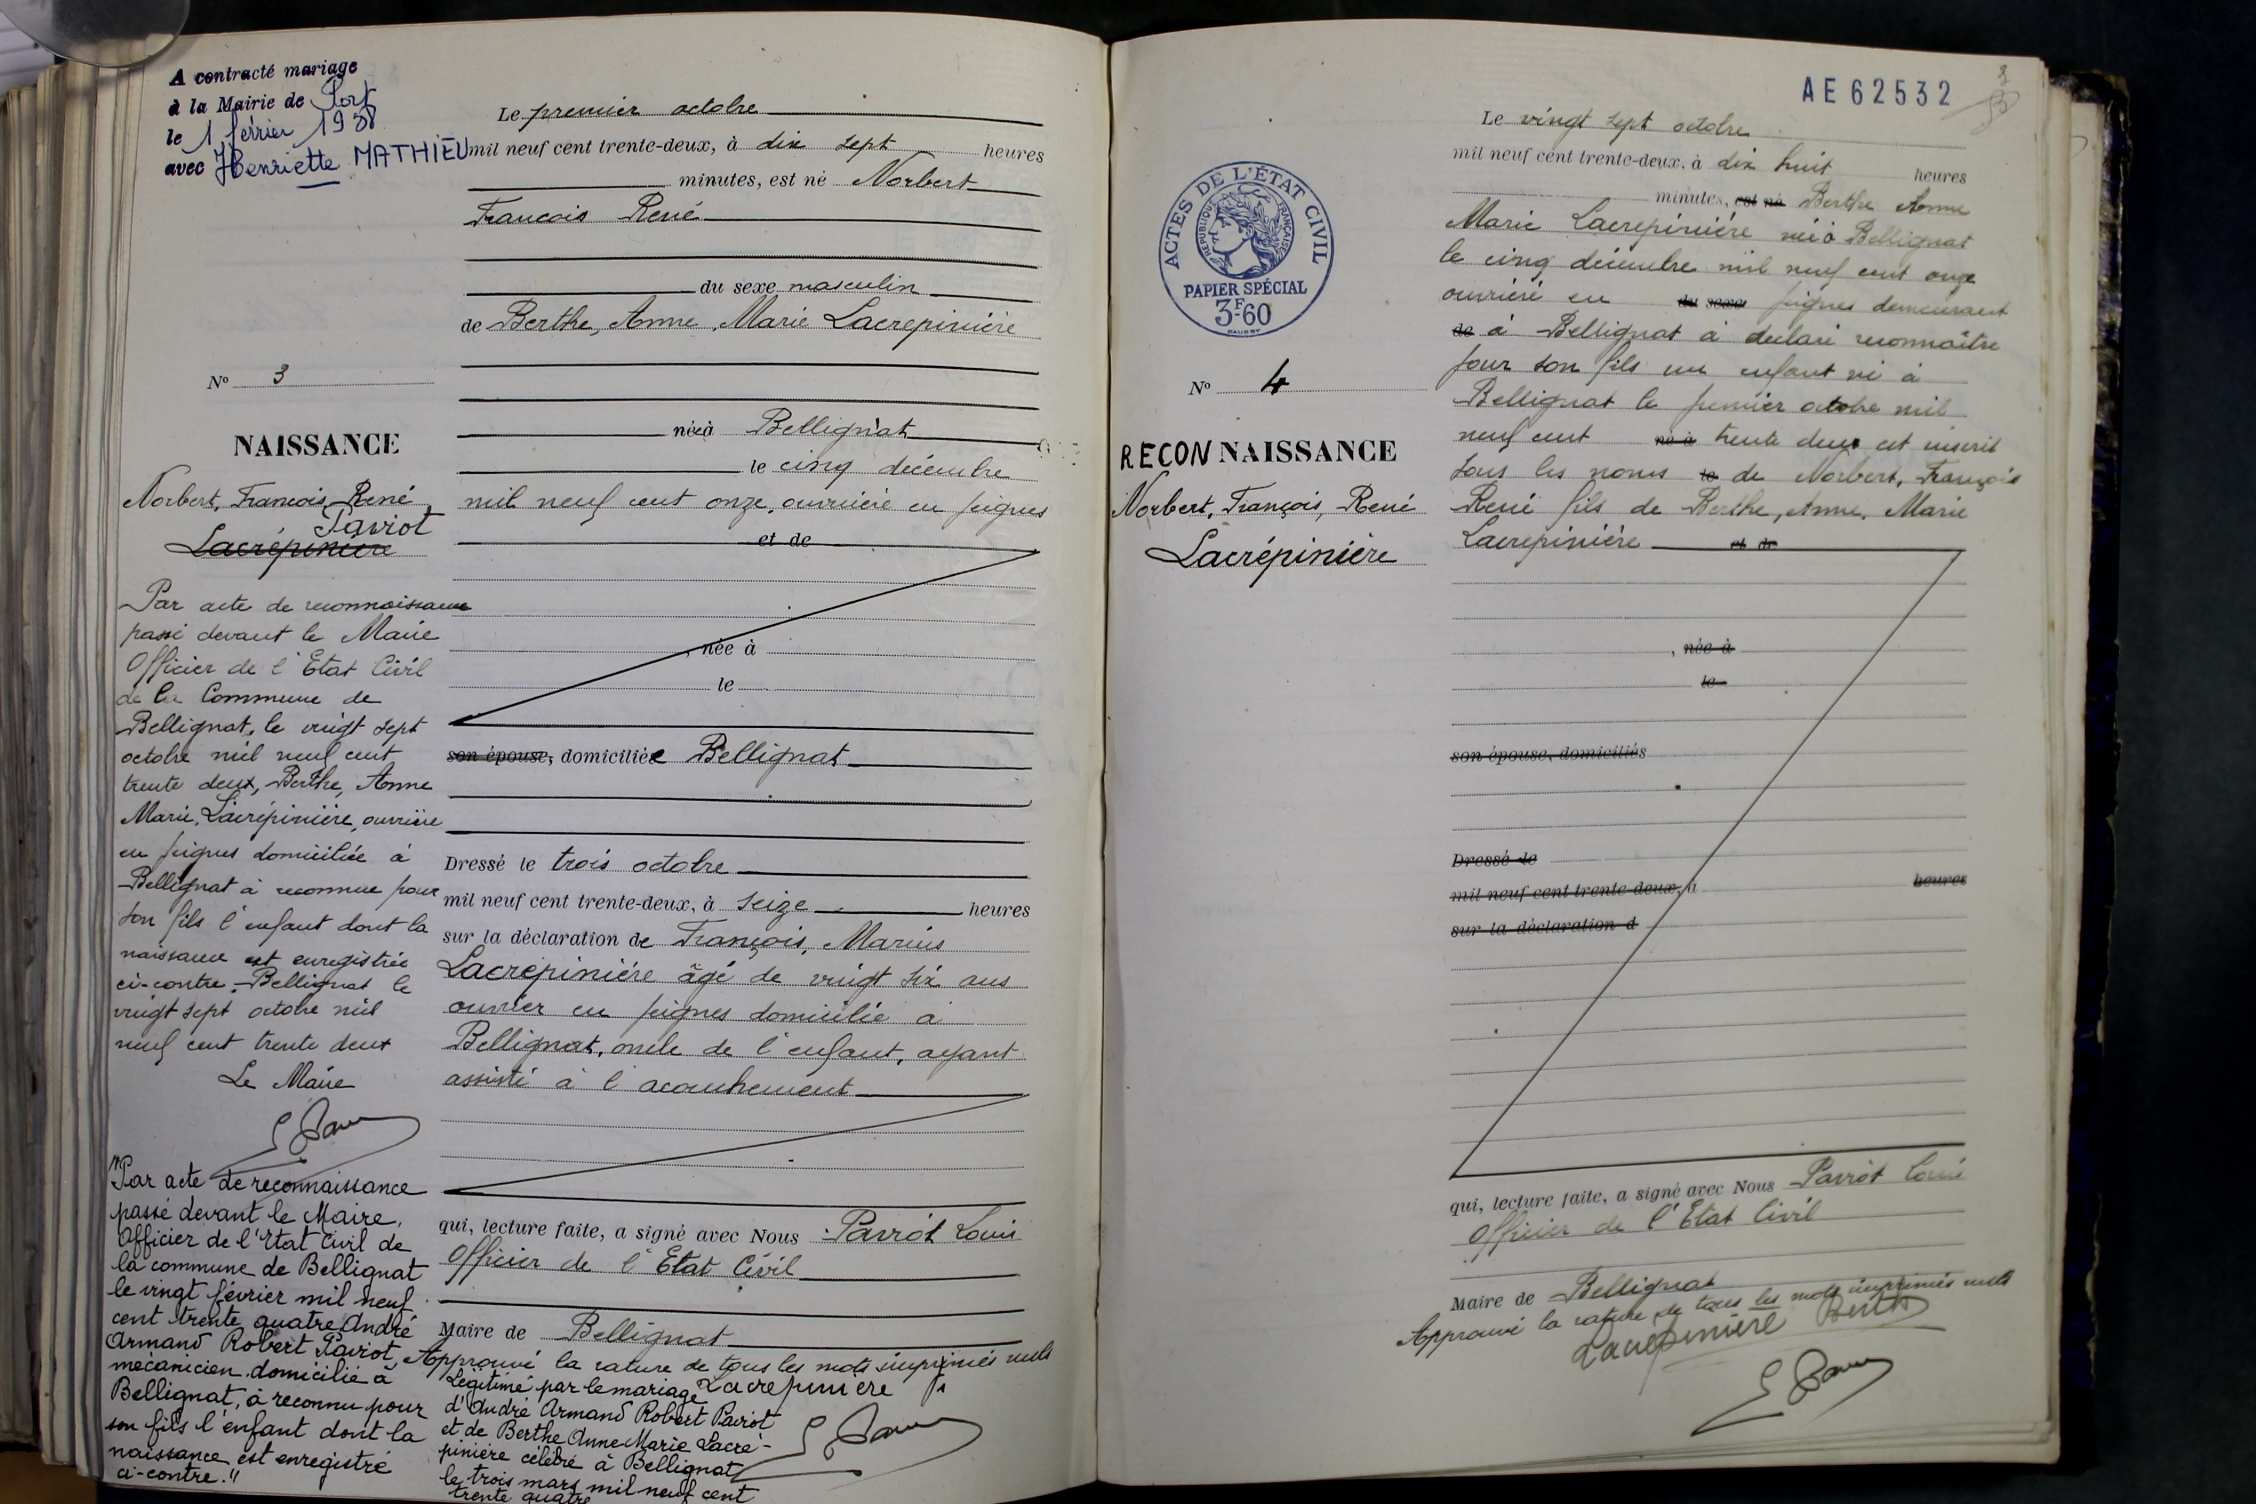 A contracté mariage
à la Mairie de Port
le 1 février 1958
avec Henriette MATHIEU
No 3
NAISSANCE
Norbert, Francois, René
Paviot
Lacrépinière
Par acte de reconnaissance
passé devant le Maire
Officier de l'Etat Civil
de la Commune de
Bellignat, le vingt sept
octobre mil neuf cent
trente deux, Berthe, Anne
Marie, Lacrépinière, ouvrière
en peignes domiciliée à
Bellignat à reconnue pour
son fils l'enfant dont la
naissance est enregistrée
ci-contre. Bellignat le
vingt sept octobre mil
neuf cent trente deux
Le Maire
"Par acte de reconnaissance
passé devant le Maire,
Officier de l'Etat Civil de
la commune de Bellignat
le vingt février mil neuf
cent trente quatre André
Armand Robert Paviot,
mécanicien domicilié à
Bellignat, à reconnu pour
son fils l'enfant dont la
naissance est enregistré
ci-contre."
Le premier octobre
mil neuf cent trente-deux, à dix sept heures
minutes, est né Norbert
Francois René
du sexe masculin
de Berthe, Anne, Marie Lacrepinière
née à Bellignat
le cinq décembre
mil neuf cent onze, ouvrière en peignes
et de
, née à
le
son épouse, domiciliée Bellignat
Dressé le trois octobre
mil neuf cent trente-deux, à seize heures
sur la déclaration de François, Marius
Lacrepinière âgé de vingt six ans
ouvrier en peignes domicilié à
Bellignat, oncle de l'enfant, ayant
assisté à l'acouchement
qui, lecture faite, a signé avec Nous Paviot Louis
Officier de l'Etat Civil
Maire de Bellignat
Approuvé la rature de tous les mots imprimés nuls
Lacrepinière
Légitimé par le mariage
d'André Armand Robert Paviot
et de Berthe Anne Marie Lacré-
pinière célébré à Bellignat
le trois mars mil neuf cent
trente quatre
AE 62532
ACTES DE L'ÉTAT CIVIL
RÉPUBLIQUE FRANÇAISE
PAPIER SPÉCIAL
3F.60
No 4
RECONNAISSANCE
Norbert, François, René
Lacrépinière
Le vingt sept octobre
mil neuf cent trente-deux, à dix huit heures
minutes, est né Berthe Anne
Marie Lacrepinière née à Bellignat
le cinq décembre mil neuf cent onze
ouvrière en du sexe peignes demeurant
de à Bellignat à déclaré reconnaître
pour son fils un enfant né à
Bellignat le premier octobre mil
neuf cent né à trente deux et inscrit
sous les noms le de Norbert, François
René fils de Berthe, Anne, Marie
Lacrepinière et de
, née à
le
son épouse, domiciliés
Dressé le
mil neuf cent trente-deux, à heures
sur la déclaration d
qui, lecture faite, a signé avec Nous Paviot Louis
Officier de l'Etat Civil
Maire de Bellignat
Approuvé la rature de tous les mots imprimés nuls
Lacrepinière Berthe